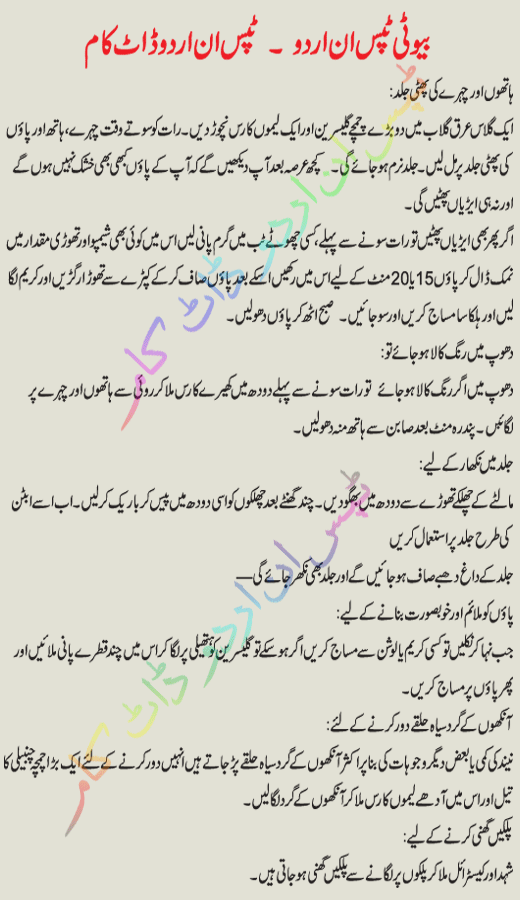 بیوٹی ٹپس ان اردو ۔ ٹپس ان اردو ڈاٹ کام
ہاتھوں اور چہرے کی پھٹی جلد:
ایک گلاس عرق گلاب میں دو بڑے چمچے گلیسرین اور ایک لیموں کا رس نچوڑ دیں۔ رات کو سوتے وقت چہرے، ہاتھ اور پاؤں
کی پھٹی جلد پر مل لیں۔ جلد نرم ہو جائے گی۔ کچھ عرصہ بعد آپ دیکھیں گے کہ آپ کے پاؤں کبھی بھی خشک نہیں ہوں گے
اور نہ ہی ایڑیاں پھٹیں گی۔
اگر پھر بھی ایڑیاں پھٹیں تو رات سونے سے پہلے، کسی چھوٹے ٹب میں گرم پانی لیں اس میں کوئی بھی شیمپو اور تھوڑی مقدار میں
نمک ڈال کر پاؤں 15 یا 20 منٹ کے لیے اس میں رکھیں اسکے بعد پاؤں صاف کر کے کپڑے سے تھوڑا رگڑیں اور کریم لگا
لیں اور ہلکا سا مساج کریں اور سو جائیں۔ صبح اٹھ کر پاؤں دھولیں۔
دھوپ میں رنگ کالا ہو جائے تو:
دھوپ میں اگر رنگ کالا ہو جائے تو رات سونے سے پہلے دودھ میں کھیرے کا رس ملا کر روئی سے ہاتھوں اور چہرے پر
لگائیں۔ پندرہ منٹ بعد صابن سے ہاتھ منہ دھولیں۔
جلد میں نکھار کے لیے:
مالٹے کے چھلکے تھوڑے سے دودھ میں بھگو دیں۔ چند گھنٹے بعد چھلکوں کو اسی دودھ میں پیس کر باریک کر لیں۔ اب اسے ابٹن
کی طرح جلد پر استعمال کریں
جلد کے داغ دھبے صاف ہو جائیں گے اور جلد بھی نکھر جائے گی—
پاؤں کو ملائم اور خوبصورت بنانے کے لیے:
جب نہا کر نکلیں تو کسی کریم یا لوشن سے مساج کریں اگر ہو سکے تو گلیسرین کو ہتھیلی پر لگا کر اس میں چند قطرے پانی ملائیں اور
پھر پاؤں پر مساج کریں۔
آنکھوں کے گرد سیاہ حلقے دور کرنے کے لئے:
نیند کی کمی یا بعض دیگر وجوہات کی بنا پر اکثر آنکھوں کے گرد سیاہ حلقے پڑ جاتے ہیں انہیں دور کرنے کے لئے ایک بڑا چمچ چنبیلی کا
تیل اور اس میں آدھے لیموں کا رس ملا کر آنکھوں کے گرد لگا لیں۔
پلکیں گھنی کرنے کے لیے:
شہد اور کیسٹرائل ملا کر پلکوں پر لگانے سے پلکیں گھنی ہو جاتی ہیں۔
ٹپس ان اردو ڈاٹ کام
ٹپس ان اردو ڈاٹ کام